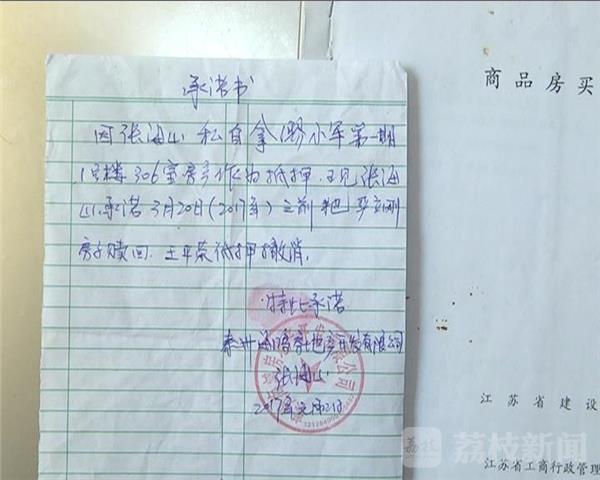 承诺书
因张海山私自拿缪小军第一期
1号楼306室房子作为抵押. 现张海
山承诺3月20日(2017年)之前把
房子赎回. 王平荣抵押撤消.
特此承诺
泰州 房地产开发有限公司
张海山
2017年 月 日
商品房买
江苏省建设
江苏省工商行政管理
荔枝新闻